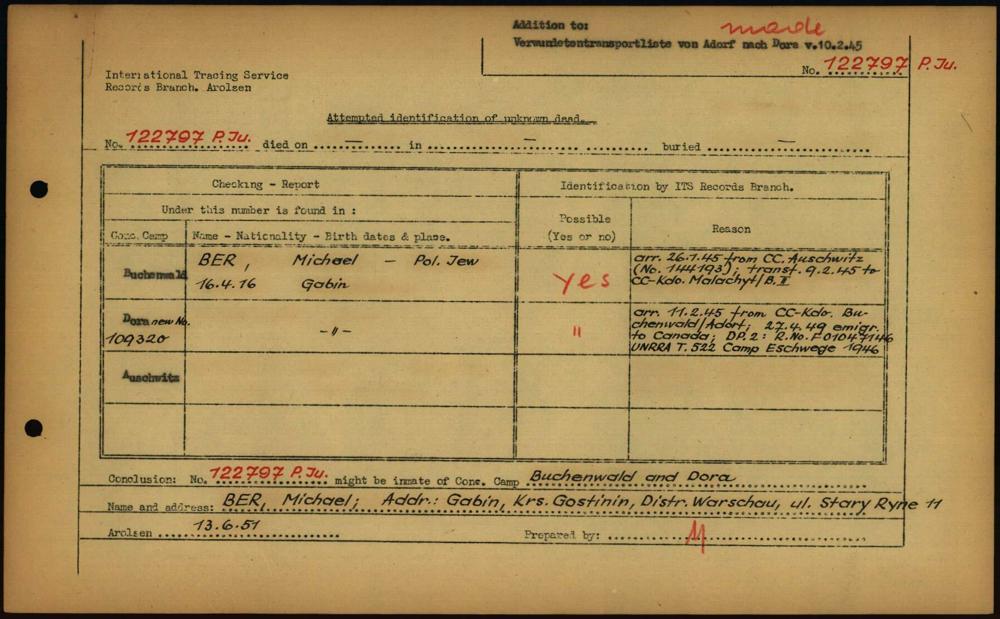 Addition to: made
Verwundetentransportliste von Adorf nach Dora v.10.2.45
No. 122797 P.Ju.
International Tracing Service
Records Branch. Arolsen
Attempted identification of unknown dead.
No. 122797 P.Ju. died on — in — buried —
Checking - Report
Identification by ITS Records Branch.
Under this number is found in :
Possible
(Yes or no)
Reason
Conc. Camp
Name - Nationality - Birth dates & place.
Buchenwald
BER, Michael - Pol. Jew
16.4.16 Gabin
yes
arr. 26.1.45 from CC. Auschwitz
(No. 144193); transf. 9.2.45 to
CC-Kdo. Malachyt/B.II
Dora new No.
109320
-"-
"
arr. 11.2.45 from CC-Kdo. Bu-
chenwald/Adorf; 27.4.49 emigr.
to Canada; DP.2: R.No.F01047146
UNRRA T.522 Camp Eschwege 1946
Auschwitz
Conclusion: No. 122797 P.Ju. might be inmate of Conc. Camp Buchenwald and Dora
Name and address: BER, Michael; Addr.: Gabin, Krs. Gostinin, Distr. Warschau, ul. Stary Ryne 11
Arolsen 13.6.51
Prepared by: